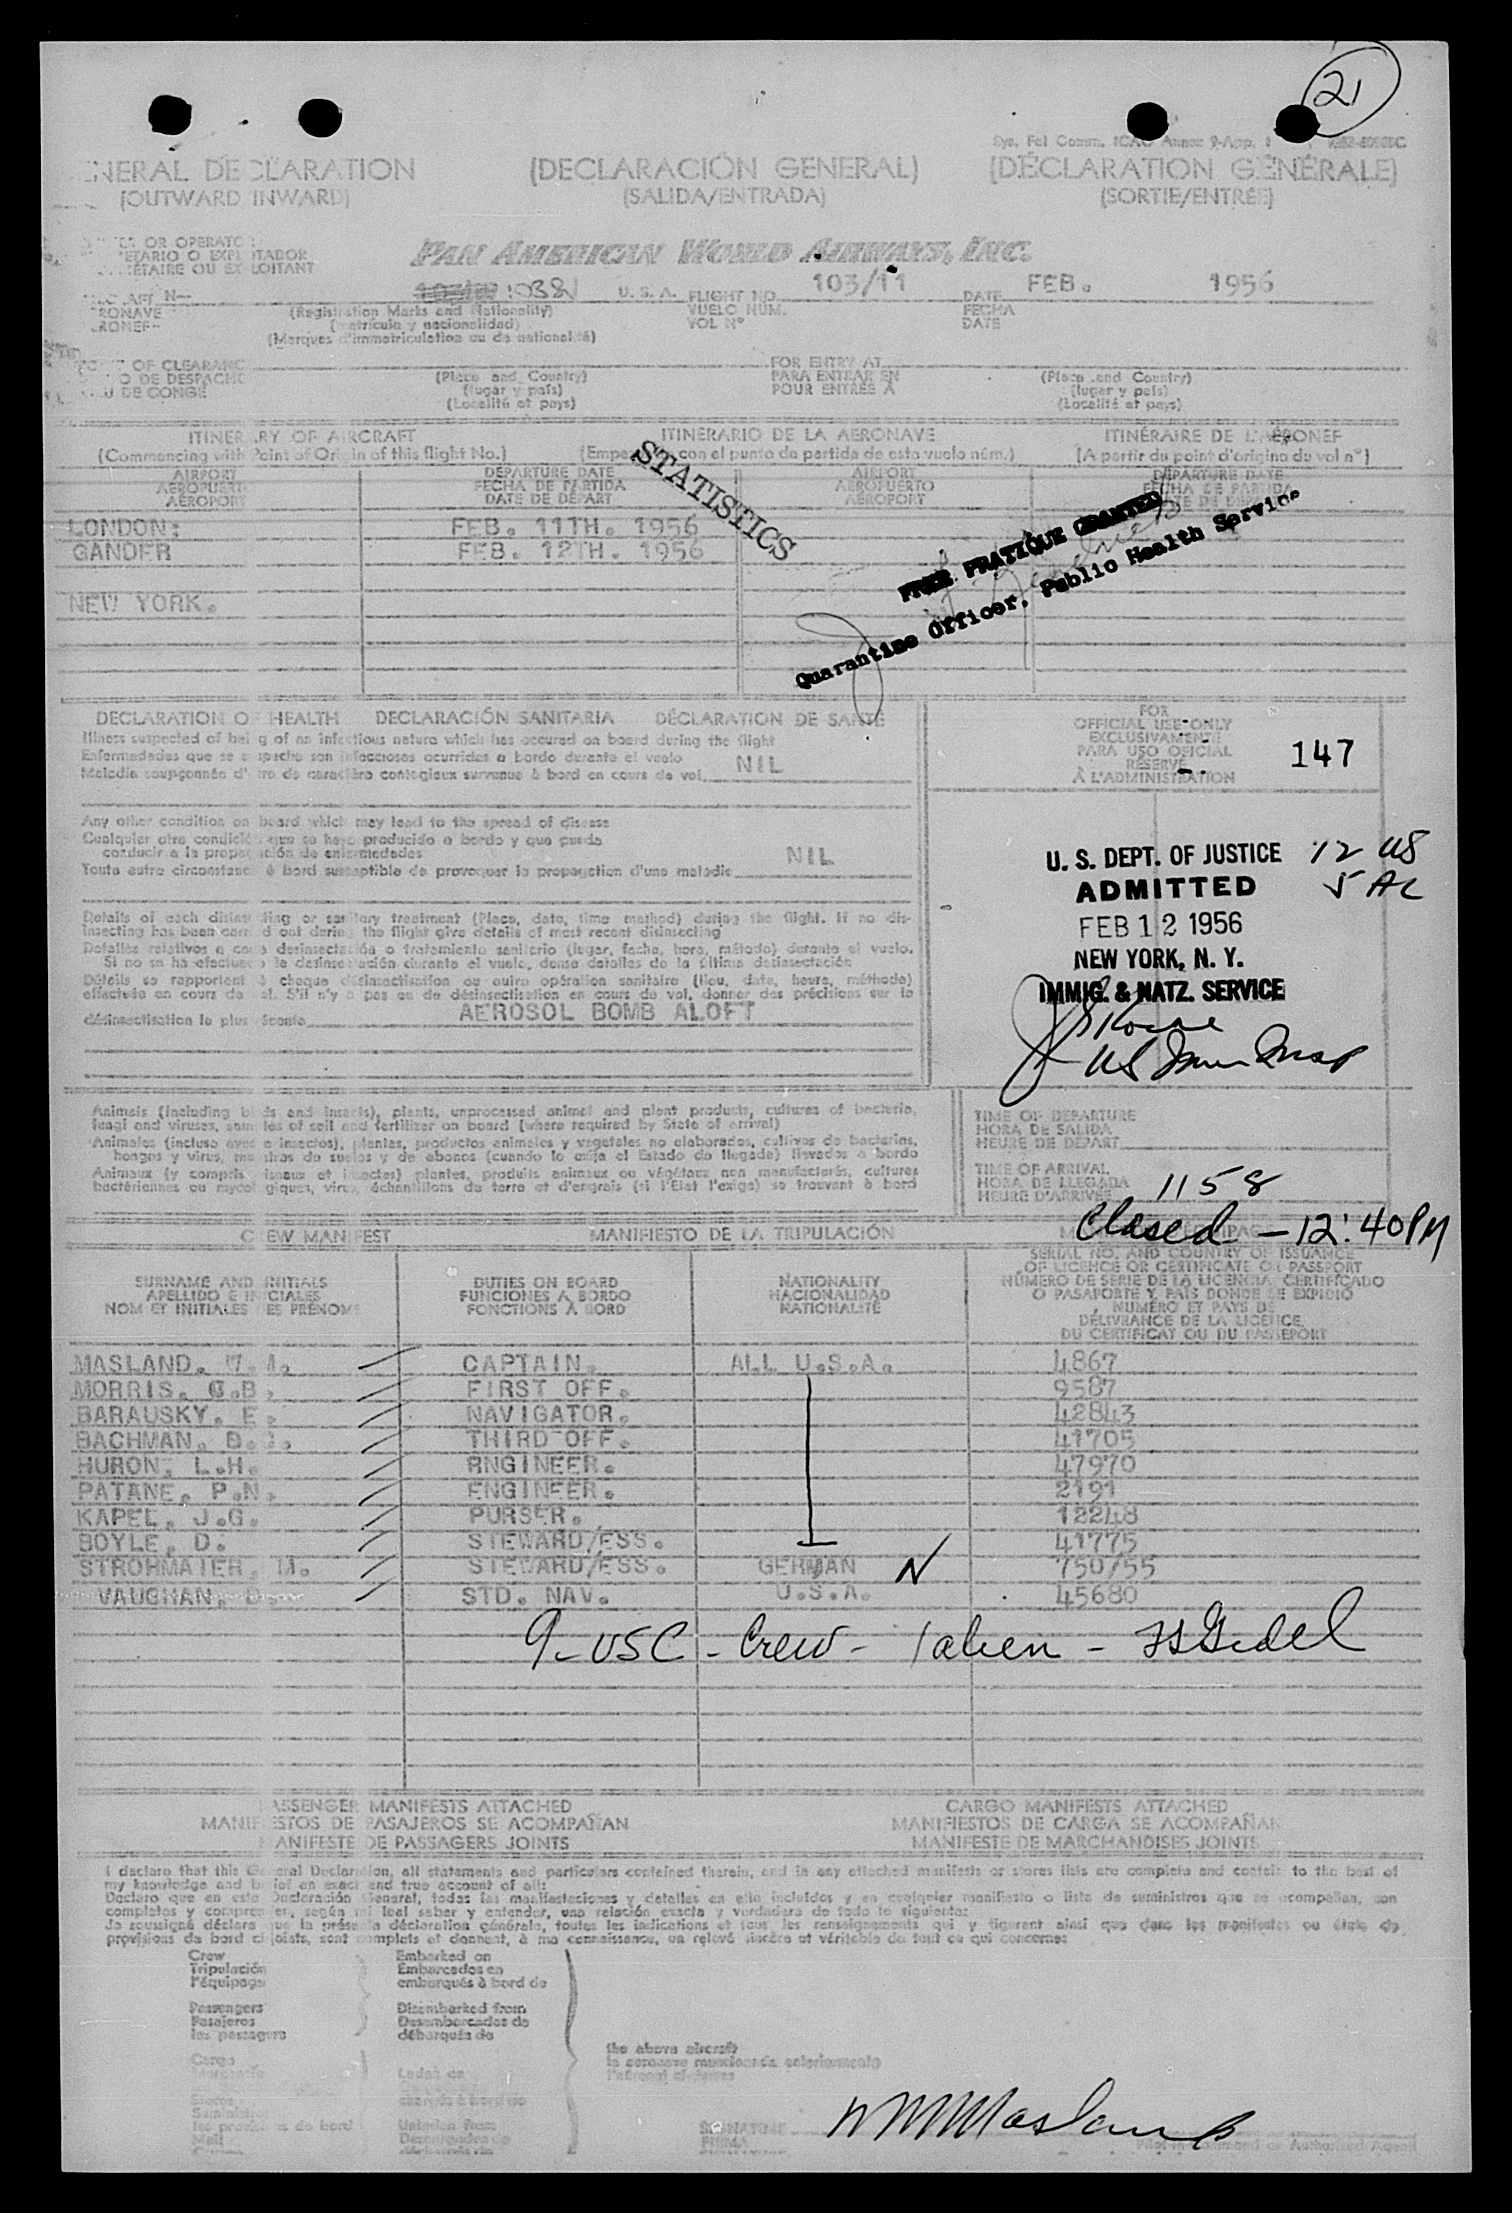 21
GENERAL DECLARATION (DECLARACIÓN GENERAL) (DÉCLARATION GÉNÉRALE)
(OUTWARD INWARD) (SALIDA/ENTRADA) (SORTIE/ENTRÉE)
OR OPERATOR
PAN AMERICAN WORLD AIRWAYS, INC.
N— 1038V U.S.A. FLIGHT NO. 103/11 DATE FEB. 1956
(Registration Marks and Nationality) VUELO NUM. FECHA
(matricula y nacionalidad) VOL Nº DATE
(Marques d'immatriculation ou de nationalité)
OF CLEARANCE FOR ENTRY AT
O DE DESPACHO (Place and Country) PARA ENTRAR EN (Place and Country)
DE CONGÉ (lugar y país) POUR ENTRÉE À (lugar y país)
(Localité et pays) (Localité et pays)
ITINERARY OF AIRCRAFT ITINERARIO DE LA AERONAVE ITINÉRAIRE DE L'AÉRONEF
(Commencing with Point of Origin of this flight No.) con el punto de partida de este vuelo núm.) [A partir du point d'origine du vol nº]
AIRPORT DEPARTURE DATE AIRPORT DEPARTURE DATE
AEROPUERTO FECHA DE PARTIDA AEROPUERTO FECHA DE PARTIDA
AÉROPORT DATE DE DÉPART AÉROPORT
STATISTICS
LONDON: FEB. 11TH. 1956
GANDER FEB. 12TH. 1956
NEW YORK.
FREE PRATIQUE GRANTED
Quarantine Officer, Public Health Service
DECLARATION OF HEALTH DECLARACIÓN SANITARIA DÉCLARATION DE SANTÉ
Illness suspected of being of an infectious nature which has occured on board during the flight
Enfermedades que se sospecha son infecciosas ocurridas a bordo durante el vuelo
Maladie soupçonnée d'être de caractère contagieux survenue à bord en cours de vol. NIL
FOR
OFFICIAL USE ONLY
EXCLUSIVAMENTE
PARA USO OFICIAL
RÉSERVÉ
À L'ADMINISTRATION
147
Any other condition on board which may lead to the spread of disease
Cualquier otra condición que se haya producido a bordo y que pueda
conducir a la propagación de enfermedades
Toute autre circonstance à bord susceptible de provoquer la propagation d'une maladie NIL
U. S. DEPT. OF JUSTICE 12 US
ADMITTED 5 AL
FEB 12 1956
NEW YORK, N. Y.
IMMIG. & NATZ. SERVICE
Details of each disinsecting or sanitary treatment (Place, date, time method) during the flight. If no dis-
insecting has been carried out during the flight give details of most recent disinsecting
Detalles relativos a cada desinsectación o tratamiento sanitario (lugar, fecha, hora, método) durante el vuelo.
Si no se ha efectuado la desinsectación durante el vuelo, dense detalles de la última desinsectación
Détails se rapportant à chaque désinsectisation ou autre opération sanitaire (lieu, date, heure, méthode)
effectuée en cours de vol. S'il n'y a pas eu de désinsectisation en cours de vol, donner des précisions sur la
désinsectisation la plus récente AEROSOL BOMB ALOFT
Animals (including birds and insects), plants, unprocessed animal and plant products, cultures of bacteria,
fungi and viruses, samples of soil and fertilizer on board (where required by State of arrival)
Animales (incluso aves e insectos), plantas, productos animales y vegetales no elaborados, cultivos de bacterias,
hongos y virus, muestras de suelos y de abonos (cuando lo exija el Estado de llegada) llevados a bordo
Animaux (y compris oiseaux et insectes) plantes, produits animaux ou végétaux non manufacturés, cultures
bactériennes ou mycologiques, virus, échantillons de terre et d'engrais (si l'Etat l'exige) se trouvant à bord
TIME OF DEPARTURE
HORA DE SALIDA
HEURE DE DÉPART
TIME OF ARRIVAL
HORA DE LLEGADA
HEURE D'ARRIVÉE 1158
Closed - 12:40PM
CREW MANIFEST MANIFIESTO DE LA TRIPULACIÓN
SURNAME AND INITIALS DUTIES ON BOARD NATIONALITY SERIAL NO. AND COUNTRY OF ISSUANCE
APELLIDO E INICIALES FUNCIONES A BORDO NACIONALIDAD OF LICENCE OR CERTIFICATE OR PASSPORT
NOM ET INITIALES DES PRÉNOMS FONCTIONS À BORD NATIONALITÉ NÚMERO DE SERIE DE LA LICENCIA, CERTIFICADO
O PASAPORTE Y PAÍS DONDE SE EXPIDIÓ
NUMÉRO ET PAYS DE
DÉLIVRANCE DE LA LICENCE,
DU CERTIFICAT OU DU PASSEPORT
MASLAND. W.M. CAPTAIN. ALL U.S.A. 4867
MORRIS. G.B. FIRST OFF. 9587
BARAUSKY. E. NAVIGATOR. 42843
BACHMAN. THIRD OFF. 41705
HURON. L.H. RNGINEER. 47970
PATANE. P.N. ENGINEER. 2191
KAPEL. J.G. PURSER. 12248
BOYLE. D. STEWARD/ESS. 41775
STROHMAIER. M. STEWARD/ESS. GERMAN N 750/55
VAUGHAN. D. STD. NAV. U.S.A. 45680
9 - USC - Crew - 1 alien -
PASSENGER MANIFESTS ATTACHED CARGO MANIFESTS ATTACHED
MANIFIESTOS DE PASAJEROS SE ACOMPAÑAN MANIFIESTOS DE CARGA SE ACOMPAÑAN
MANIFESTE DE PASSAGERS JOINTS MANIFESTE DE MARCHANDISES JOINTS
I declare that this General Declaration, all statements and particulars contained therein, and in any attached manifests or stores lists are complete and contain to the best of
my knowledge and belief an exact and true account of all:
Declaro que en esta Declaración General, todas las manifestaciones y detalles en ella incluidos y en cualquier manifiesto o lista de suministros que se acompañan, son
completos y comprenden, según mi leal saber y entender, una relación exacta y verdadera de todo lo siguiente:
Je soussigné déclare que la présente déclaration générale, toutes les indications et tous les renseignements qui y figurent ainsi que dans les manifestes ou états de
provisions de bord ci-joints, sont complets et donnent, à ma connaissance, un relevé sincère et véritable de tout ce qui concerne:
Crew Embarked on
Tripulación Embarcados en
l'équipage embarqués à bord de
Passengers Disembarked from
Pasajeros Desembarcados de
les passagers débarqués de
the above aircraft
la aeronave mencionada anteriormente
Cargo
SIGNATURE
FIRMA
WMMasland
Pilot in Command or Authorized Agent